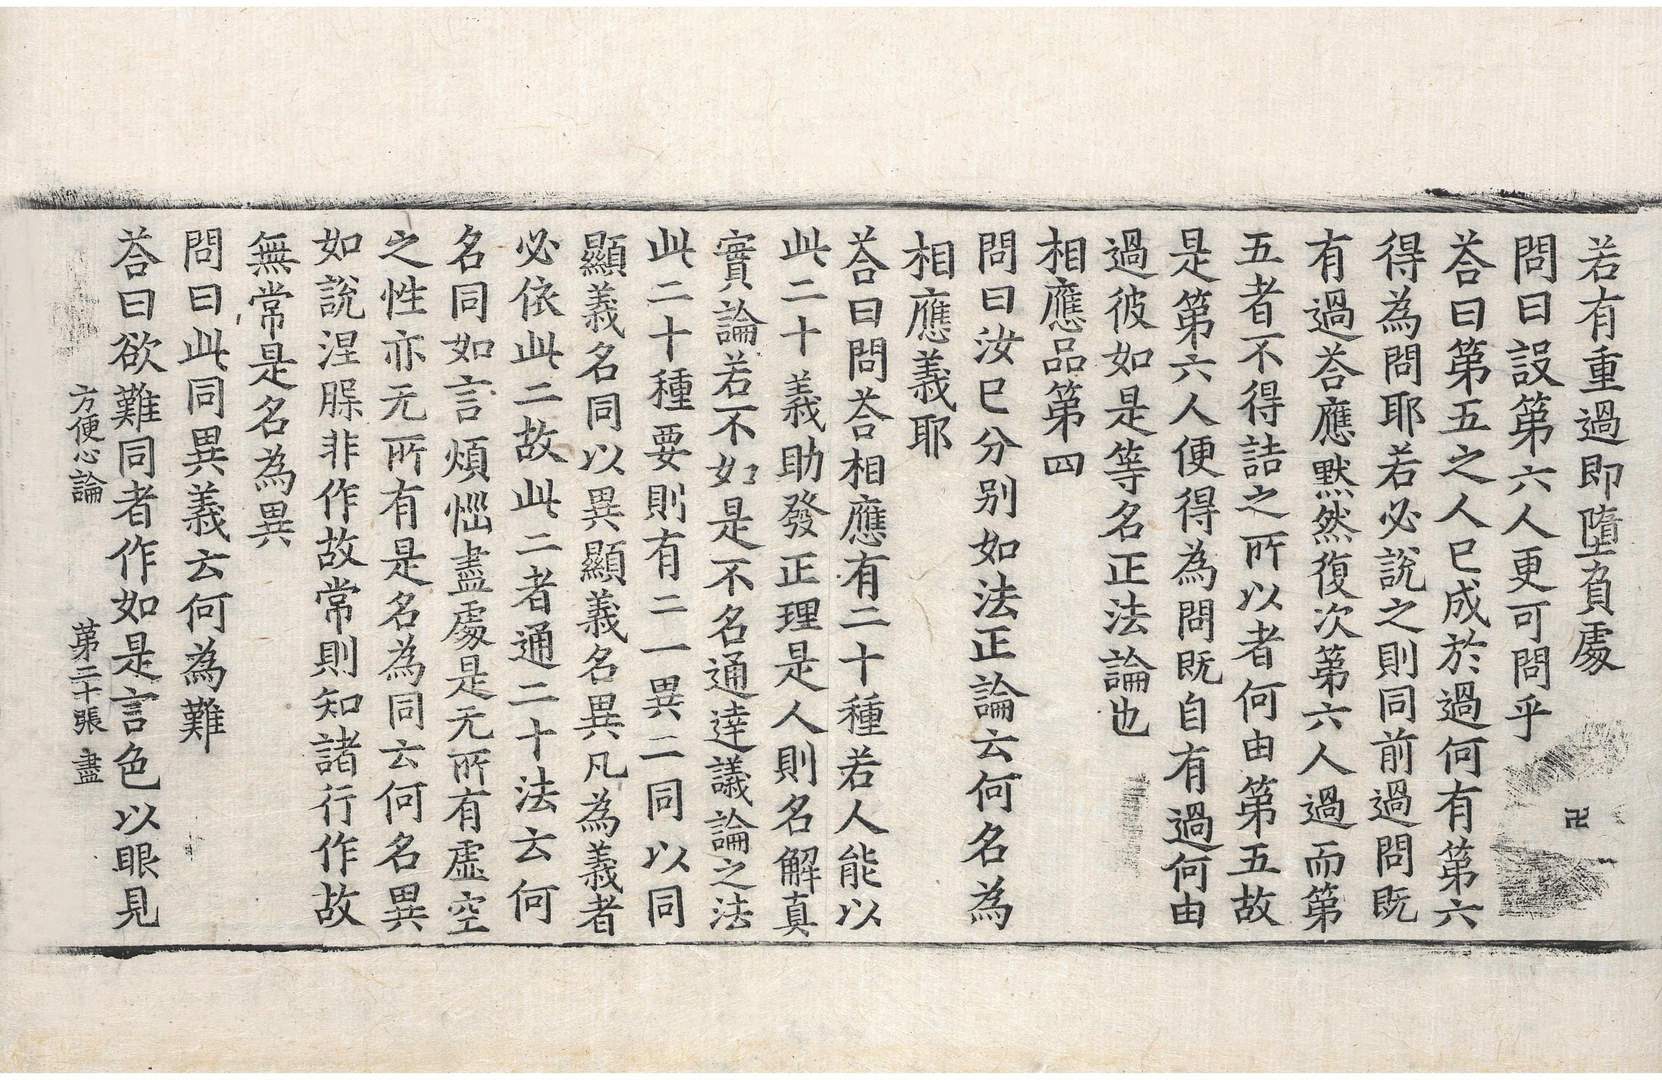 若有重過即墮負處
卍
問曰設第六人更可問乎
荅曰第五之人已成於過何有第六
得為問耶若必說之則同前過問既
有過荅應默然復次第六人過而第
五者不得詰之所以者何由第五故
是第六人便得為問既自有過何由
過彼如是等名正法論也
相應品第四
問曰汝已分別如法正論云何名為
相應義耶
荅曰問荅相應有二十種若人能以
此二十義助發正理是人則名解真
實論若不如是不名通達議論之法
此二十種要則有二一異二同以同
顯義名同以異顯義名異凡為義者
必依此二故此二者通二十法云何
名同如言煩惱盡處是无所有虛空
之性亦无所有是名為同云何名異
如說涅槃非作故常則知諸行作故
無常是名為異
問曰此同異義云何為難
荅曰欲難同者作如是言色以眼見
方便心論 第二十張 盡